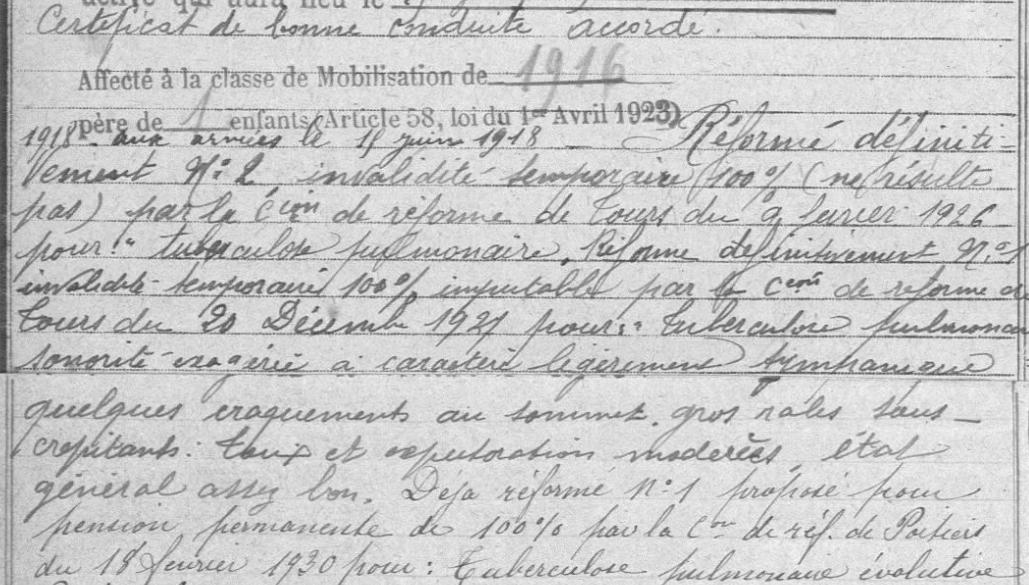 Certificat de bonne conduite accordé.
Affecté à la classe de Mobilisation de 1916
père de 1 enfants (Article 58, loi du 1er Avril 1923)
1918 aux armées le 15 juin 1918 — Réformé définiti-
vement N° 2 invalidité temporaire 100% (ne résulte
pas) par la Cion de réforme de Tours du 9 février 1926
pour: "tuberculose pulmonaire. Réformé définitivement N° 1
invalidité temporaire 100% imputable par la Cion de réforme de
Tours du 20 Décembre 1927 pour: "Tuberculose pulmonaire
sonorité exagérée à caractère légèrement tympanique
quelques craquements au sommet, gros râles sous-
crépitants: Toux et expectoration modérées, état
général assez bon. Déjà réformé n° 1 proposé pour
pension permanente de 100% par la Con de réf. de Poitiers
du 18 février 1930 pour: Tuberculose pulmonaire évolutive